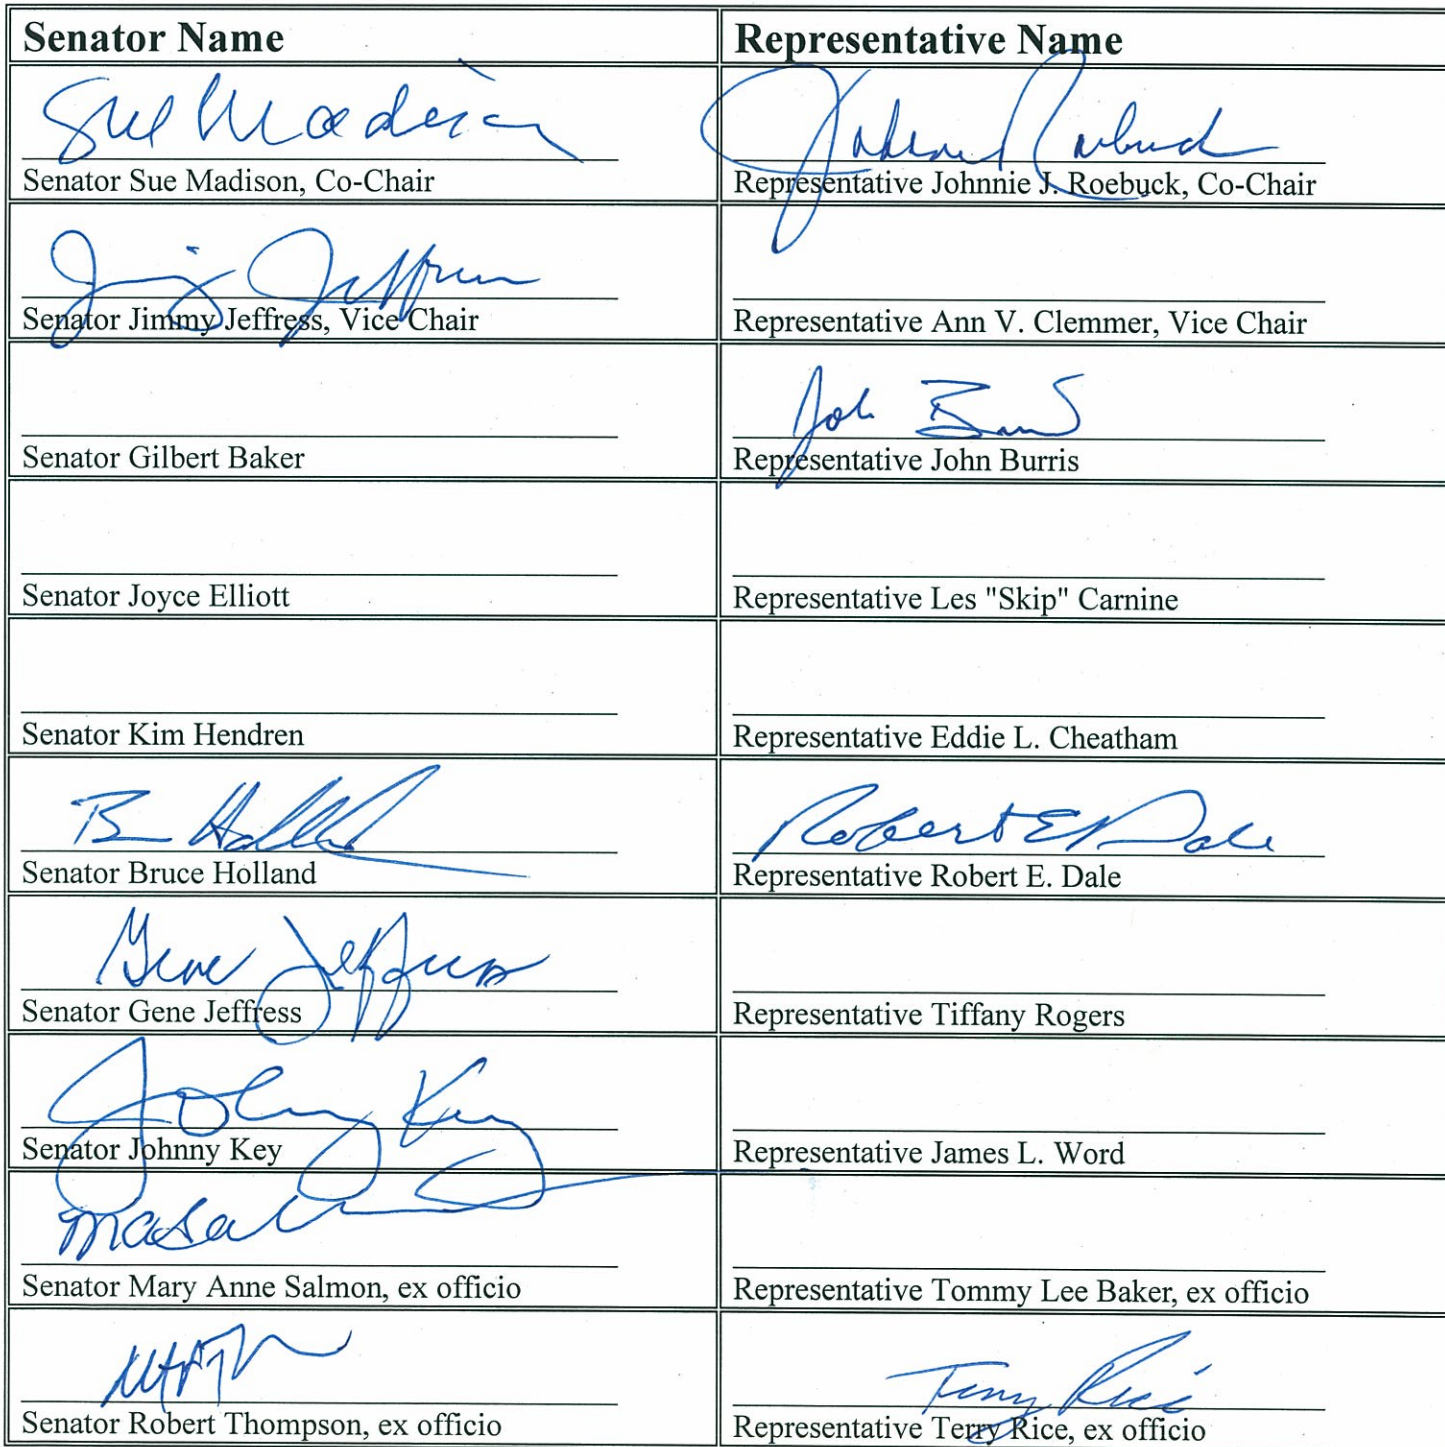 Senator Name
Representative Name
Sue Madison
Senator Sue Madison, Co-Chair
Johnnie Roebuck
Representative Johnnie J. Roebuck, Co-Chair
Jimmy Jeffress
Senator Jimmy Jeffress, Vice Chair
Representative Ann V. Clemmer, Vice Chair
Senator Gilbert Baker
John Burris
Representative John Burris
Senator Joyce Elliott
Representative Les "Skip" Carnine
Senator Kim Hendren
Representative Eddie L. Cheatham
Senator Bruce Holland
Robert E Dale
Representative Robert E. Dale
Gene Jeffress
Senator Gene Jeffress
Representative Tiffany Rogers
Johnny Key
Senator Johnny Key
Representative James L. Word
Senator Mary Anne Salmon, ex officio
Representative Tommy Lee Baker, ex officio
Senator Robert Thompson, ex officio
Terry Rice
Representative Terry Rice, ex officio